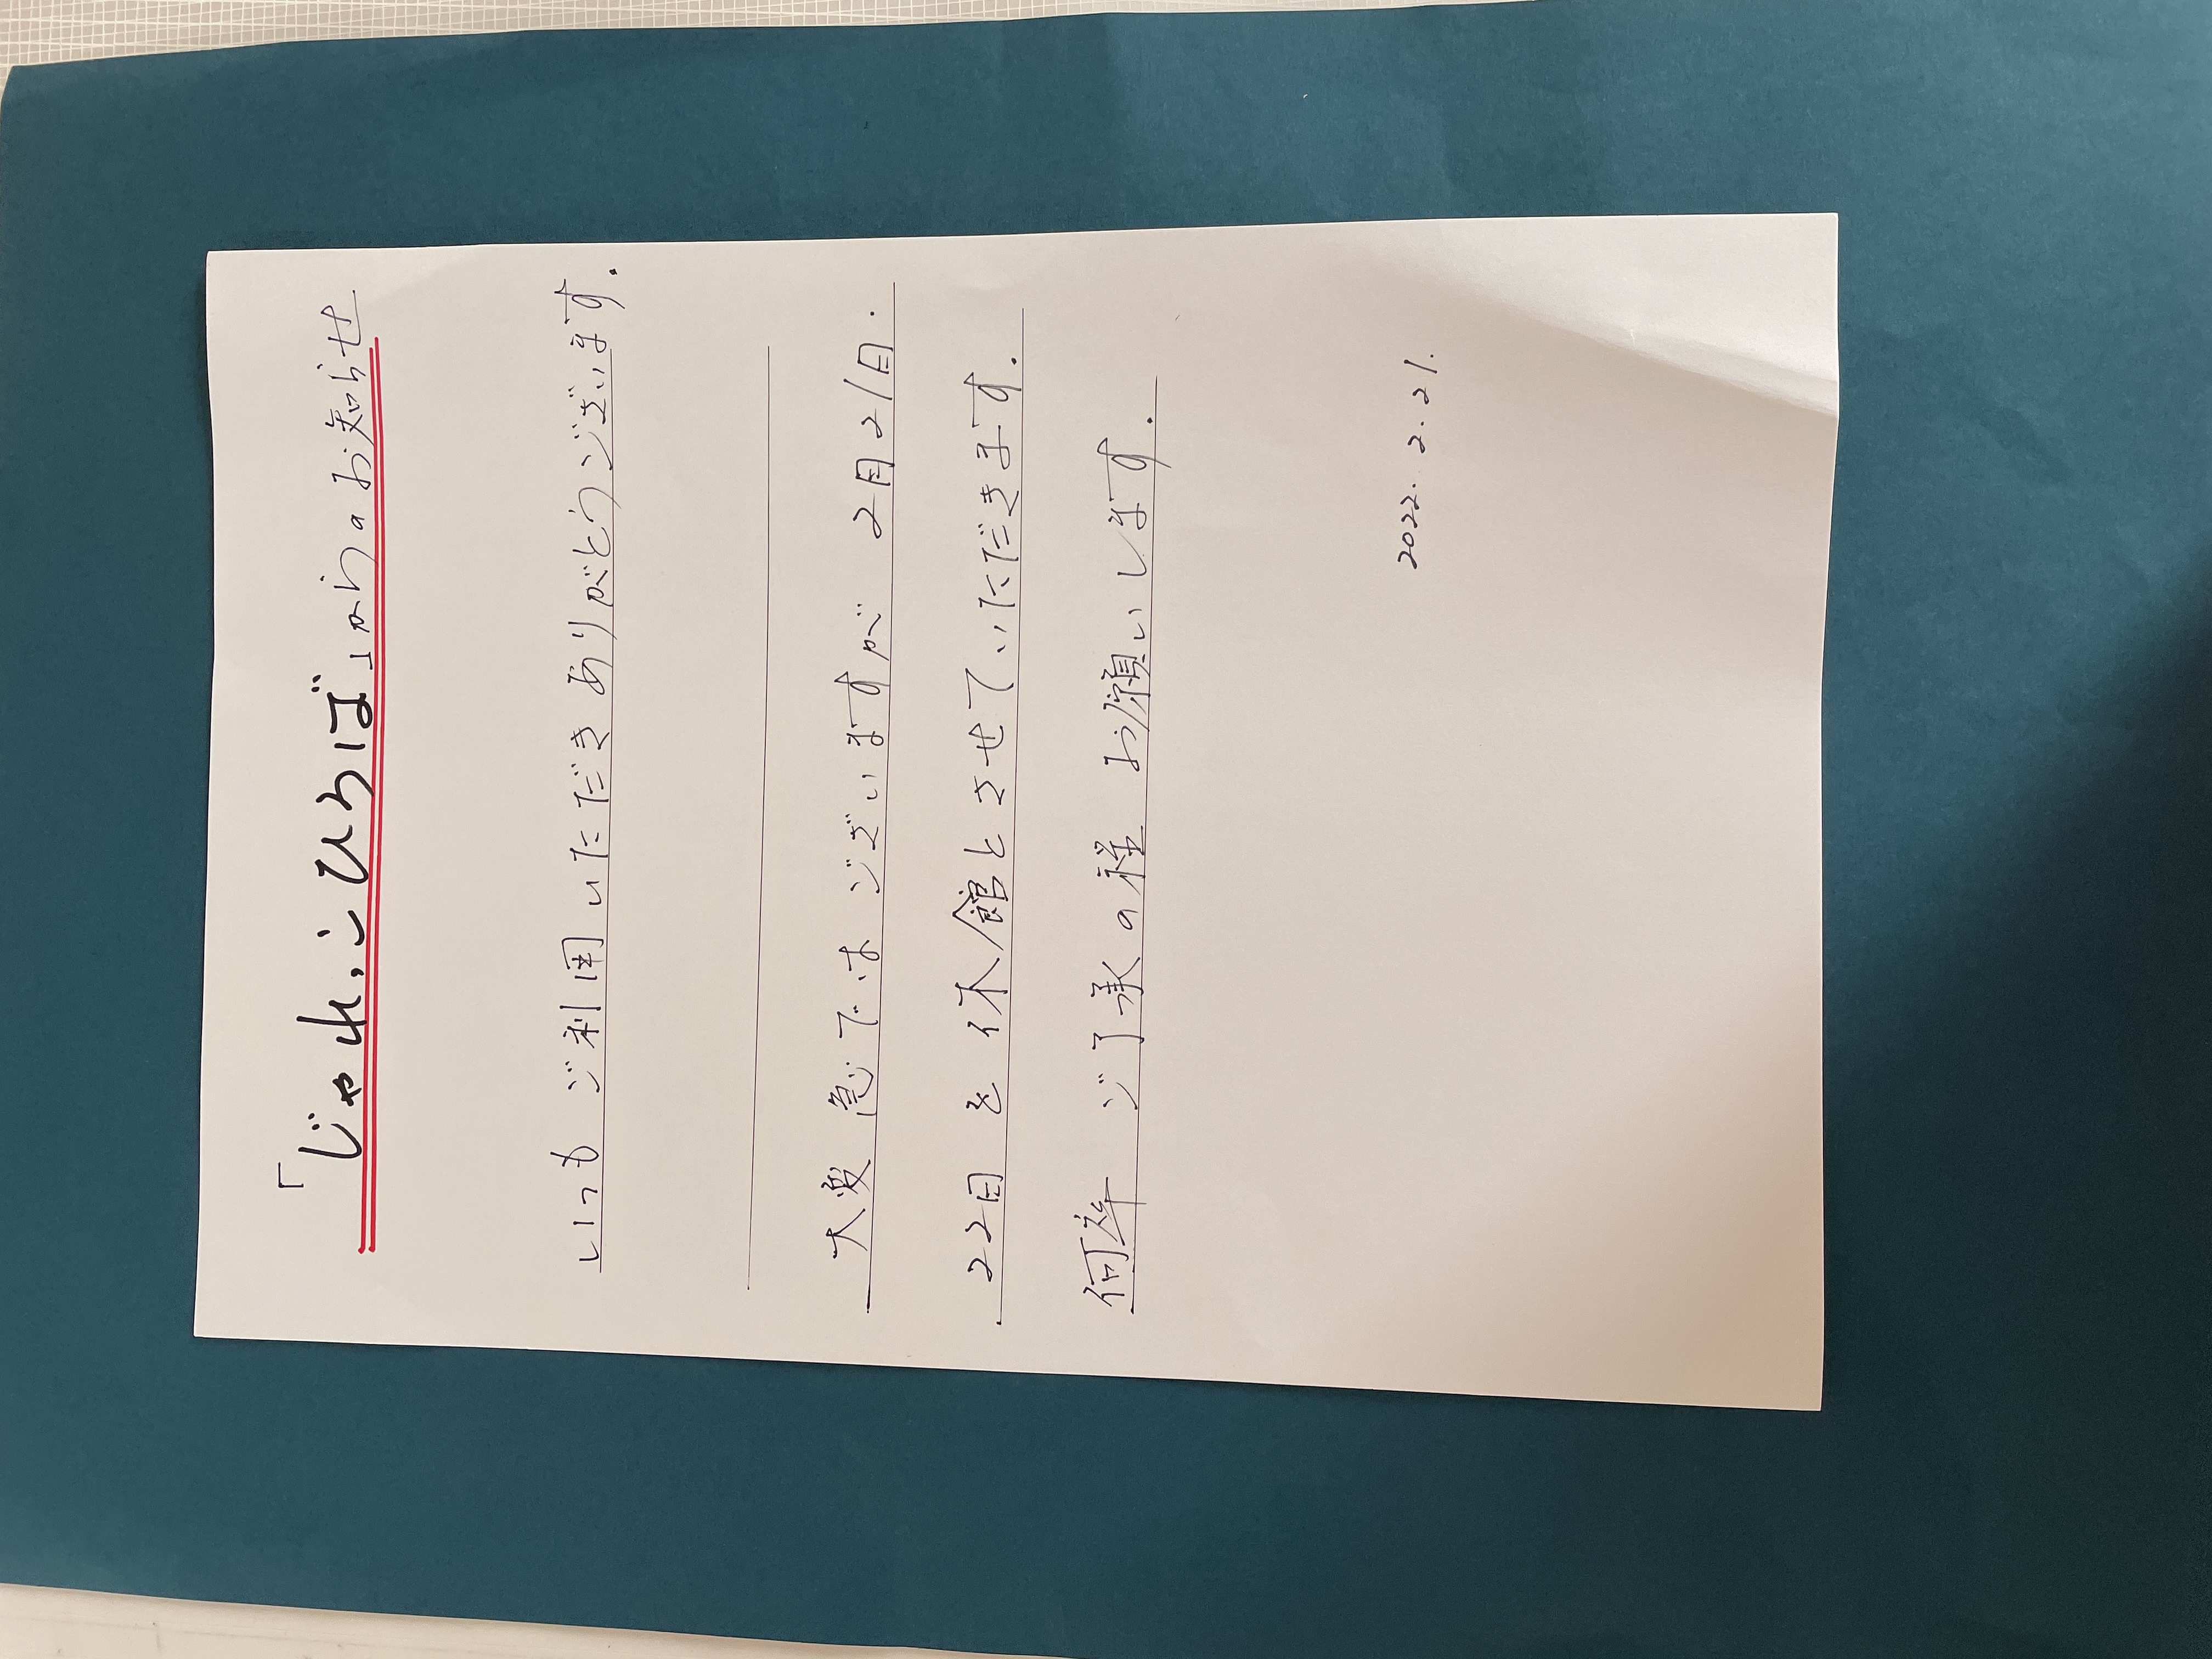 「じゃれっこひろば」からのお知らせ
いつも ご利用いただき ありがとうございます.
大変 急ではございますが 2月21日.
22日を休館とさせていただきます.
何卒 ご了承の程 お願いします.
2022. 2. 21.